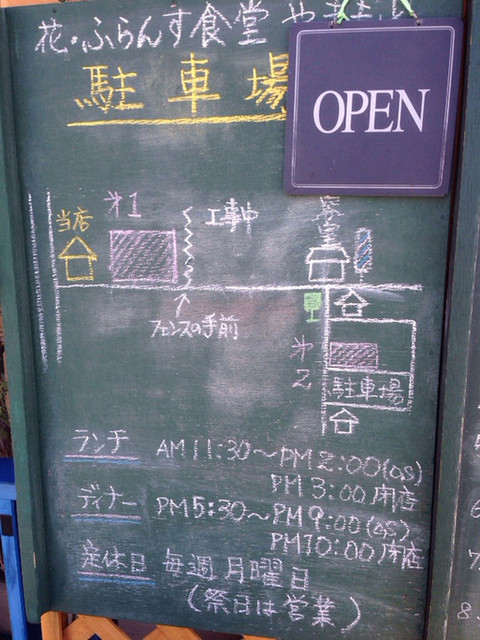 花・ふらんす食堂 やま
OPEN
駐車場
当店
オ1
工事中
フェンスの手前
オ2
駐車場
ランチ AM11:30〜PM2:00(OS)
PM3:00閉店
ディナー PM5:30〜PM9:00(OS)
PM10:00閉店
定休日 毎週月曜日
(祭日は営業)